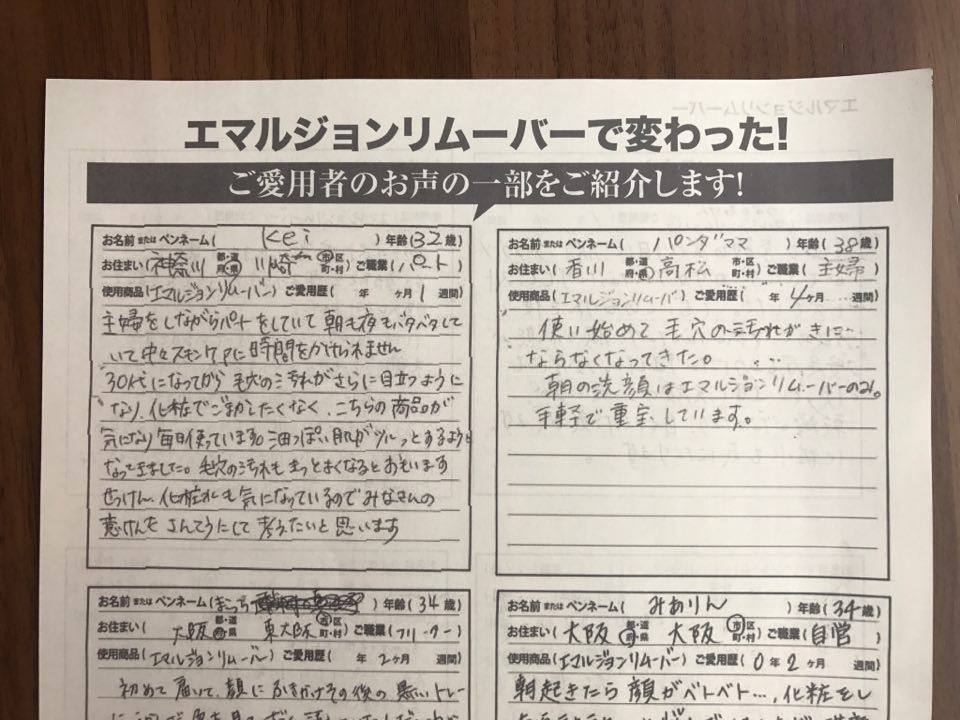 エマルジョンリムーバーで変わった!
ご愛用者のお声の一部をご紹介します!
お名前 または ペンネーム( Kei ) 年齢(32歳)
お住まい(神奈川 都・道・府・県 川崎 市・区・町・村) ご職業(パート)
使用商品(エマルジョンリムーバー) ご愛用歴( 年 ヶ月 1 週間)
主婦をしながらパートをしていて朝も夜もバタバタして
いて中々スキンケアに時間をかけられません
30代になってから毛穴の汚れがさらに目立つように
なり、化粧でごまかしたくなく、こちらの商品が
気になり毎日使っています。油っぽい肌がツルっとするよう
なってきました。毛穴の汚れももっとよくなるとおもいます
せっけん、化粧水も気になっているのでみなさんの
意けんをさんこうにして考えたいと思います
お名前 または ペンネーム( パンダママ ) 年齢(38歳)
お住まい(香川 都・道・府・県 高松 市・区・町・村) ご職業(主婦)
使用商品(エマルジョンリムーバ) ご愛用歴( 年 4ヶ月 週間)
使い始めて毛穴の汚れがきに
ならなくなってきた。
朝の洗顔はエマルジョンリムーバーのみ。
手軽で重宝しています。
お名前 または ペンネーム(まっち ) 年齢(34歳)
お住まい( 大阪 都・道・府・県 東大阪 市・区・町・村) ご職業(フリーター)
使用商品(エマルジョンリムーバー) ご愛用歴( 年 2ヶ月 週間)
初めて届いて、顔にふきかけその後の黒いトレー
お名前 または ペンネーム( みありん ) 年齢(34歳)
お住まい(大阪 都・道・府・県 大阪 市・区・町・村) ご職業(自営)
使用商品(エマルジョンリムーバー) ご愛用歴( 0年 2ヶ月 週間)
朝起きたら顔がベトベト…、化粧をし